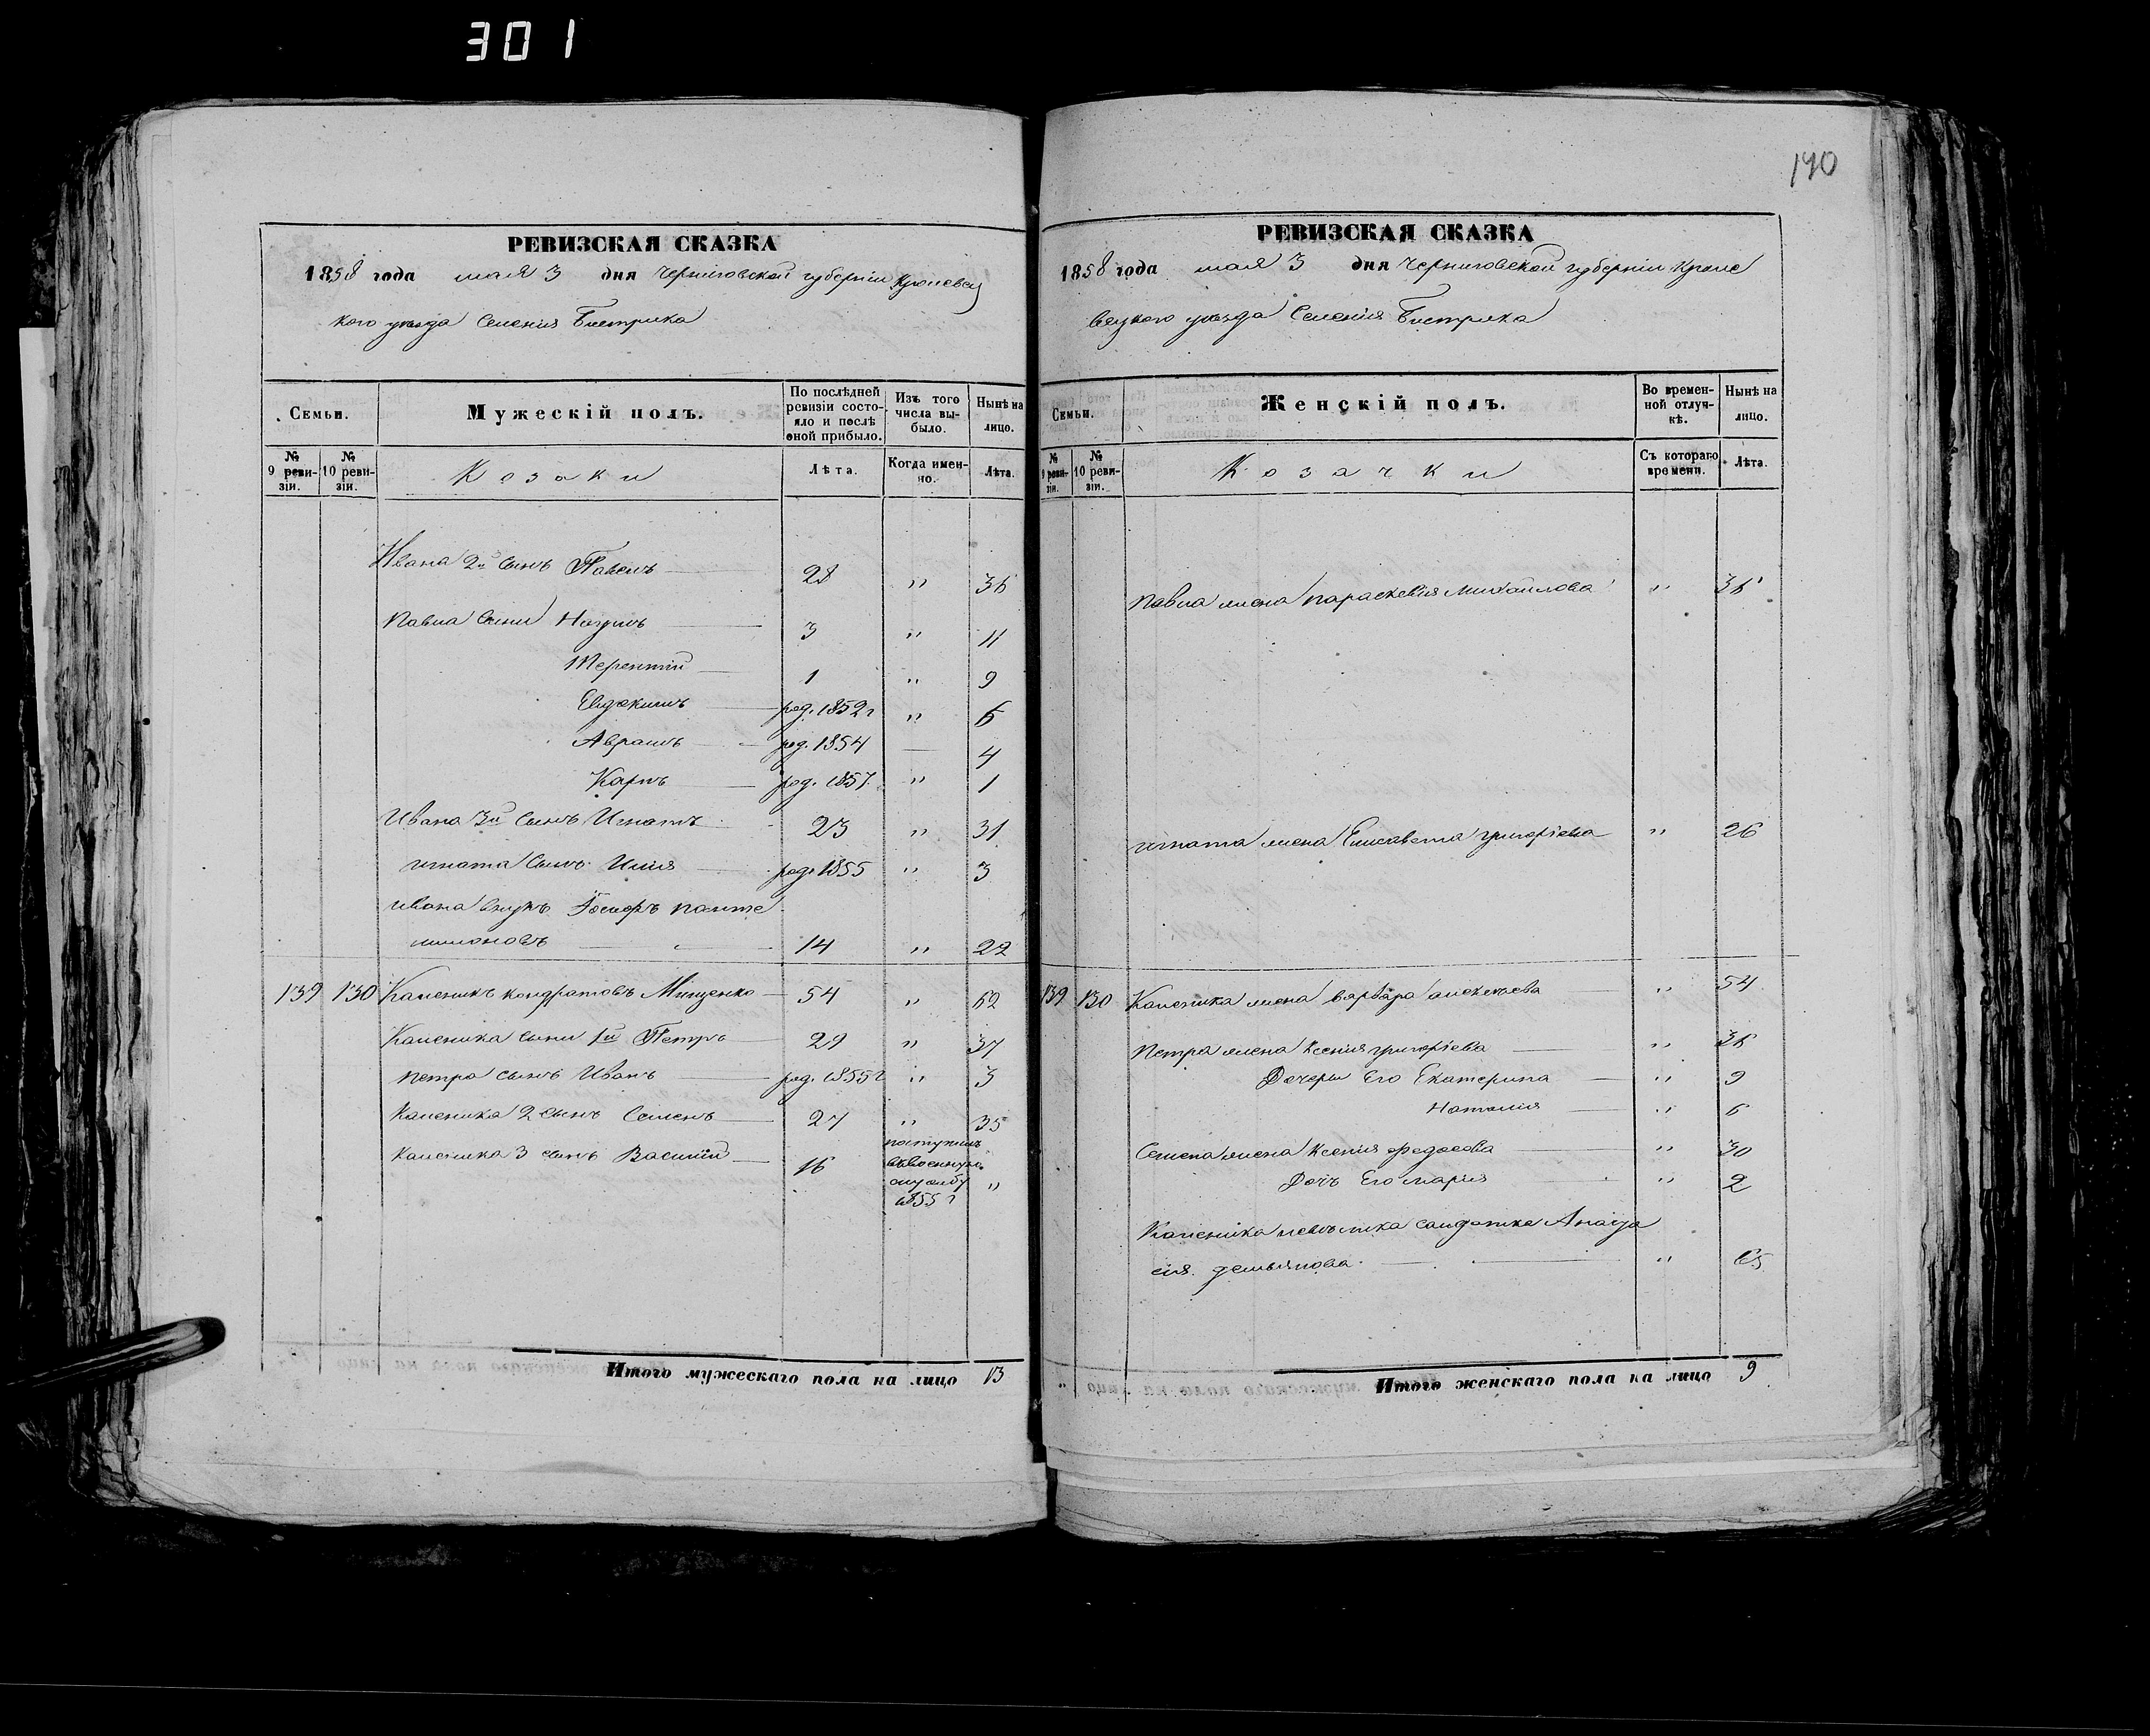 301
РЕВИЗСКАЯ СКАЗКА
1858 года мая 3 дня Черниговской губернии Кролевец
кого уезда Селения Бистрика
Семьи.
Мужескій полъ.
По послѣдней ревизіи состояло и послѣ оной прибыло.
Изъ того числа выбыло.
Нынѣ на лицо.
№ 9 ревизіи.
№ 10 ревизіи.
Козаки
Лѣта.
Когда именно.
Лѣта.
Ивана 2й сынъ Павелъ 28 " 36
Павла сыни Наумъ 3 " 11
Терентий 1 " 9
Евдокимъ род. 1852 г " 6
Аврамъ род. 1854 — 4
Карпъ род. 1857 " 1
Ивана 3й сынъ Игнатъ 23 " 31
игната сынъ Илия род. 1855 " 3
ивана внукъ панте
лимоновъ 14 " 22
139 130 Каленикъ кондратовъ Мищенко 54 " 62
Каленика сыни 1й Петръ 29 " 37
петра сынъ Иванъ род. 1855 г " 3
Каленика 2 сынъ Семенъ 27 " 35
Каленика 3 сынъ Василий 16 поступилъ
въ военную
службу "
1855 г
Итого мужескаго пола на лицо 13
190
РЕВИЗСКАЯ СКАЗКА
1858 года мая 3 дня Черниговской губернии Кроле
вецкого уезда Селения Бистрика
Семьи.
Женскій полъ.
Во временной отлучкѣ.
Нынѣ на лицо.
№ 9 ревизіи.
№ 10 ревизіи.
Козачки
Съ котораго времени.
Лѣта.
Павла жена параскевия Михайлова " 36
игната жена Елисавета григорieва " 26
139 130 Каленика жена варвара алексѣева " 54
Петра жена Ксения григорieва " 36
Дочери Его Екатерина " 9
Наталия " 6
Семена жена Ксения федосова " 30
Дочь Его мария " 2
Каленика невѣстка салдатка
сия демьянова "
Итого женскаго пола на лицо 9